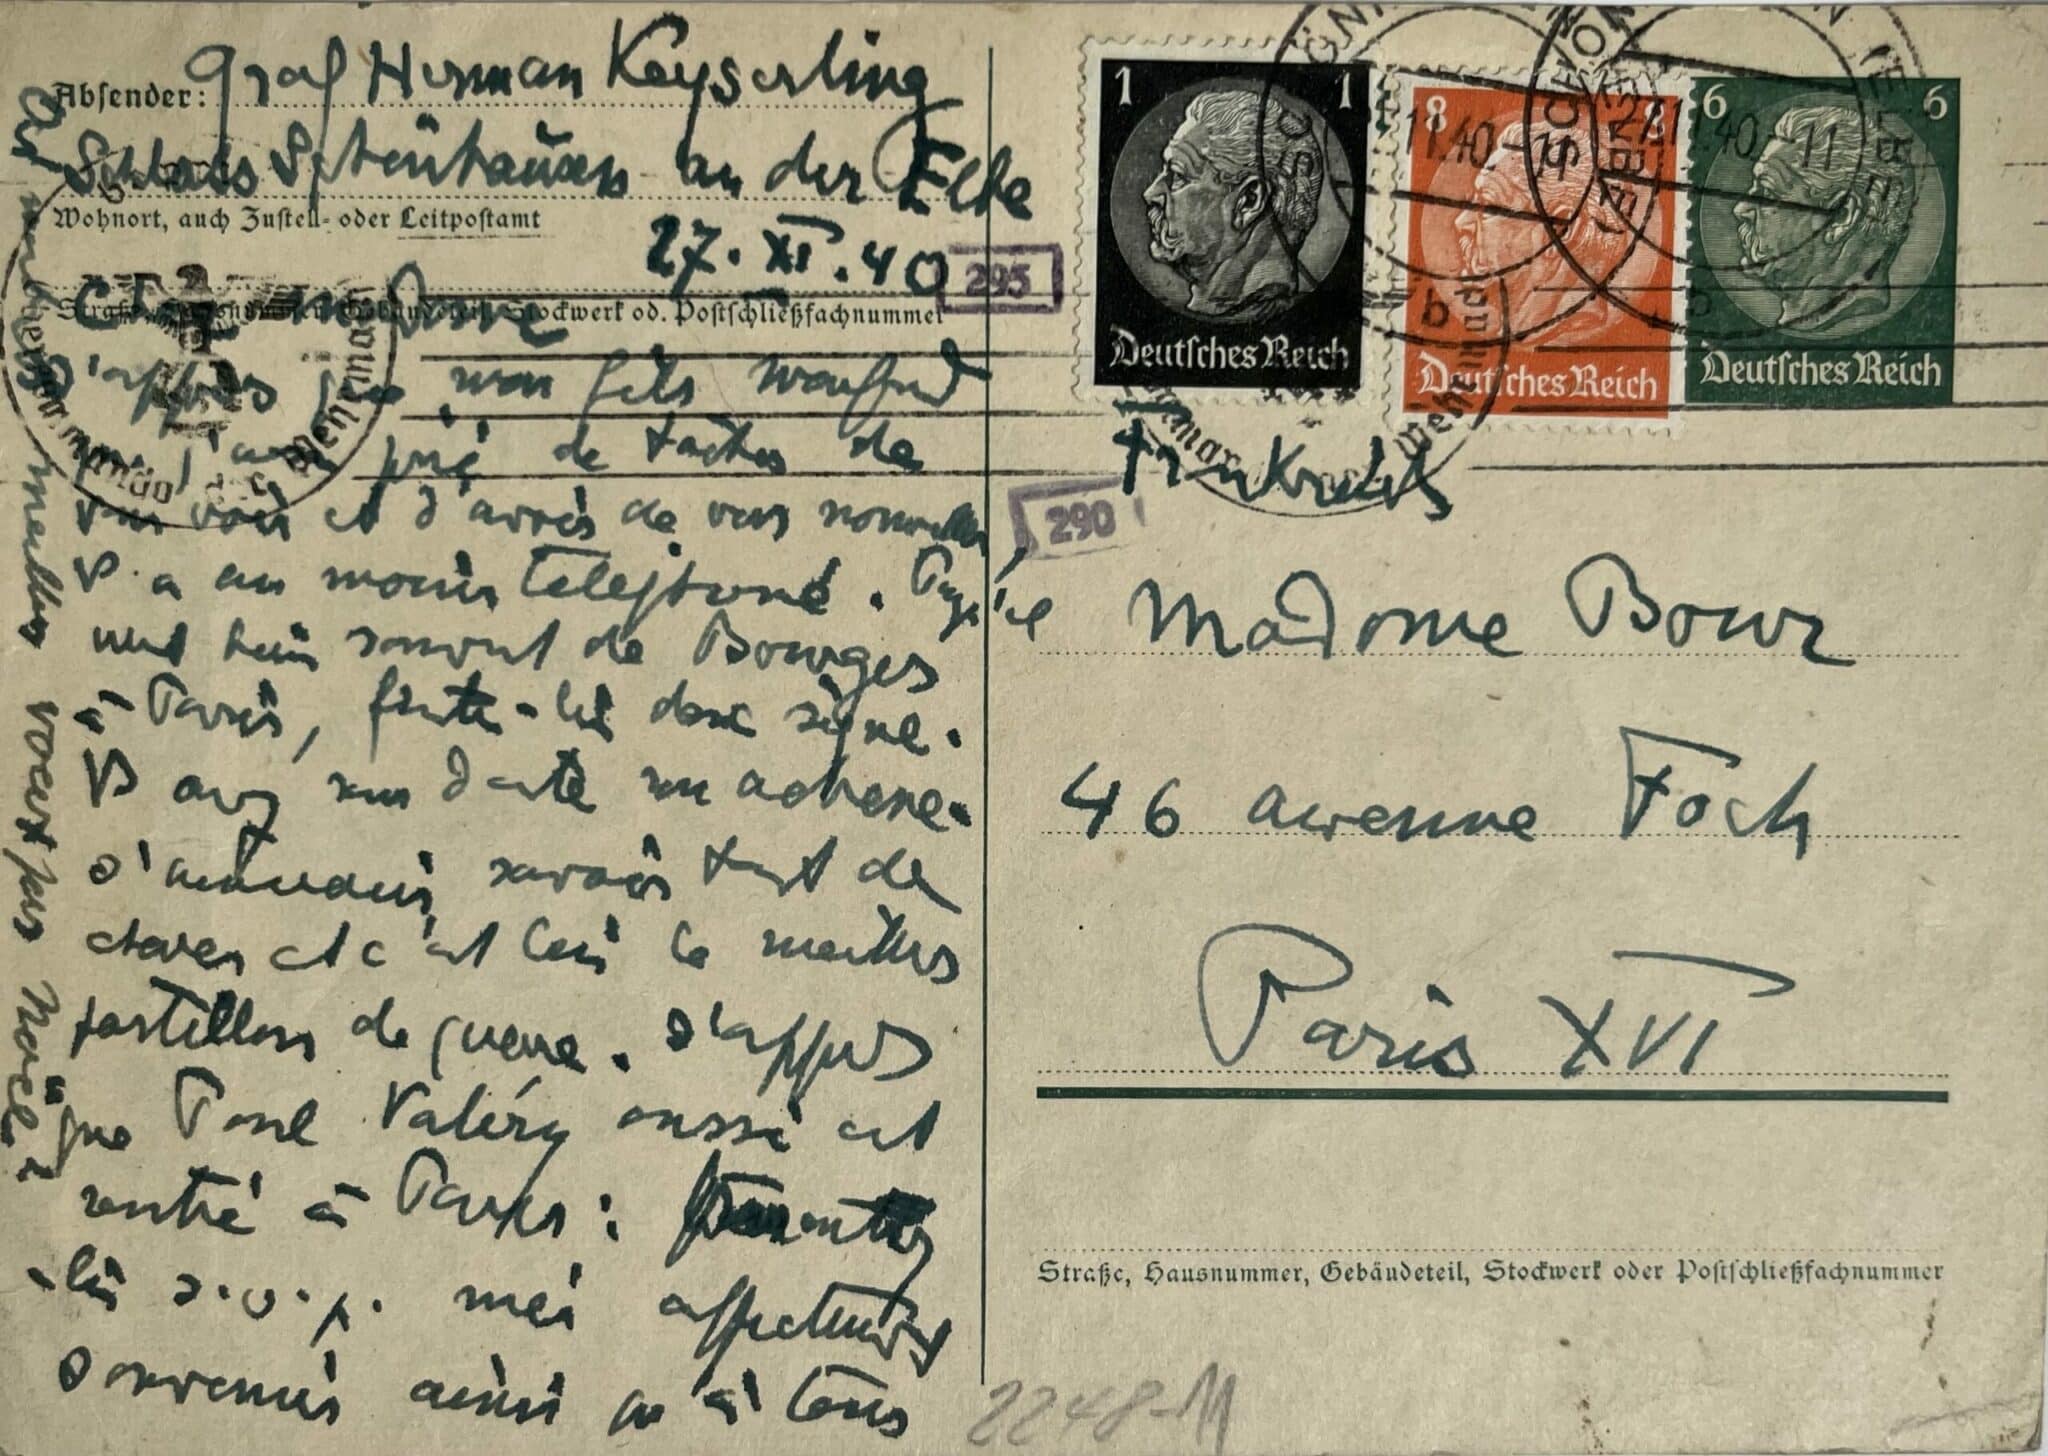 Absender: Graf Herman Keyserling
Schloss Schönhausen an der Elbe
Wohnort, auch Zustell- oder Leitpostamt
27. XI. 40
295
Straße, Hausnummer, Gebäudeteil, Stockwerk od. Postschließfachnummer
Chère Madame
j'apprends que mon fils Manfred
que j'avais prié de tâcher de
vous voir et d'avoir de vos nouvelles,
v. a au moins telephoné. Puisqu'il
vient bien souvent de Bourges
à Paris, faites-lui donc signe.
Vs avez sans doute
j'aimerais savoir tant de
choses et c'est lui le meilleur
postillon de guerre. J'apprends
que Paul Valéry aussi est
rentré à Paris: transmettez
-lui s.v.p. mes affectueux
souvenirs ainsi qu'à tous
meilleurs voeux pour Noël!
1 1
Deutsches Reich
8 8
Deutsches Reich
6 6
Deutsches Reich
27.11.40.-11
b
Oberkommando der Wehrmacht
Frankreich
290
Madame Bour
46 avenue Foch
Paris XVI
Straße, Hausnummer, Gebäudeteil, Stockwerk oder Postschließfachnummer
2248-M